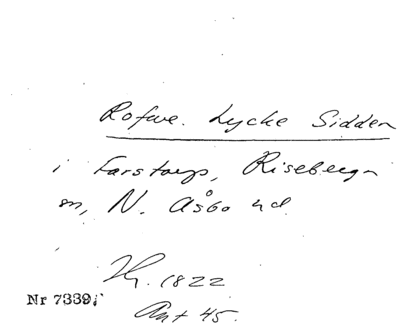 Rofwe. Lycke Sidden
i Farstorp, Riseberga
sn, N. Åsbo hd.
Hg. 1822
Nr 7339;
Ant 45.